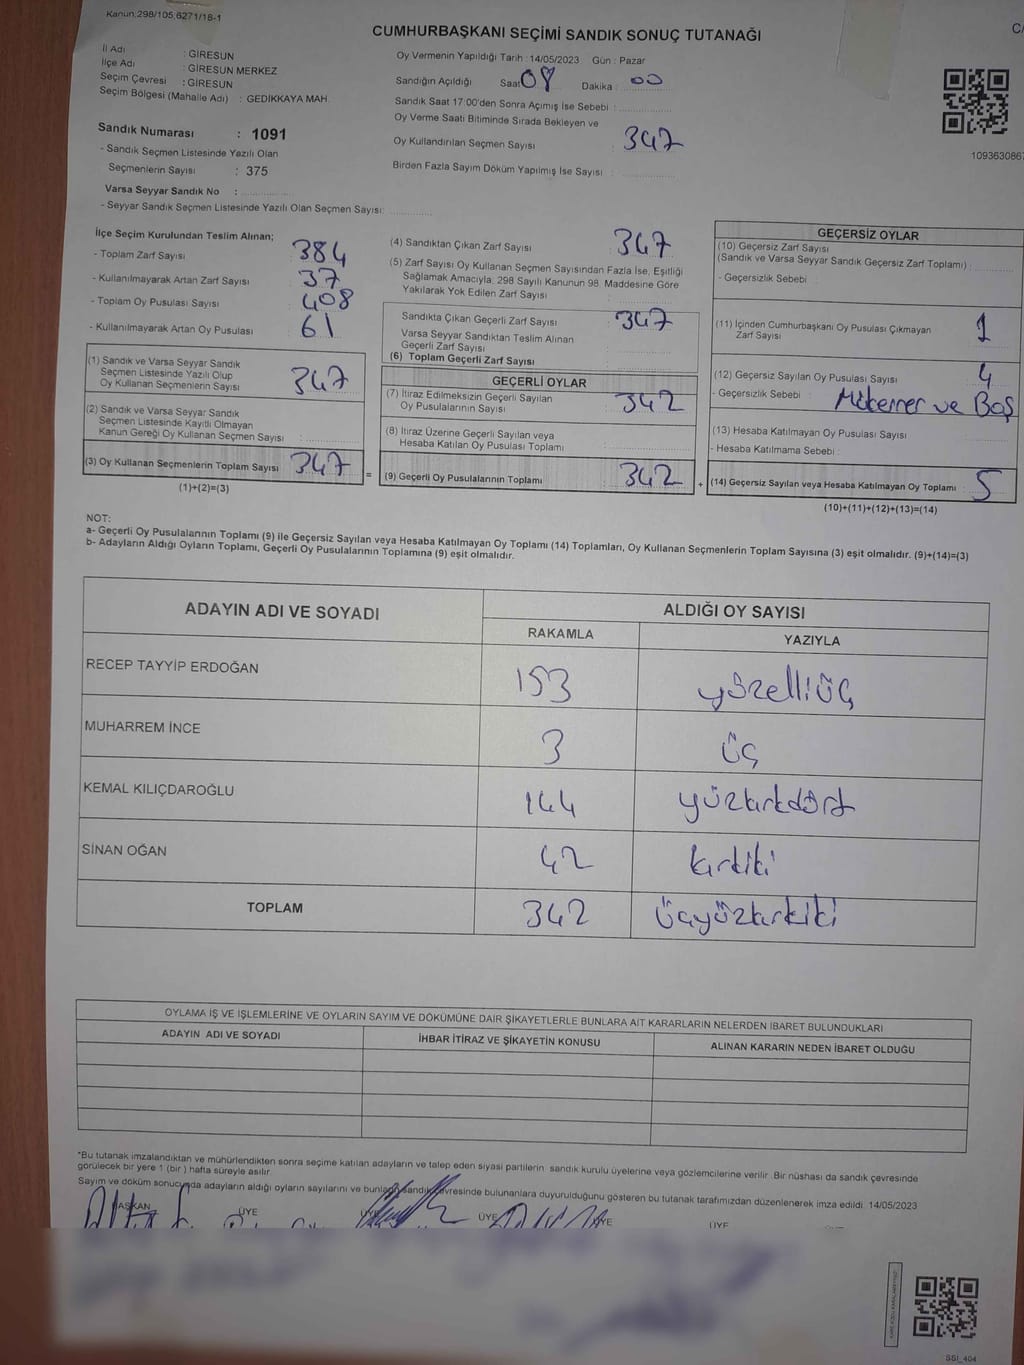 Kanun:298/105,6271/18-1
CUMHURBAŞKANI SEÇİMİ SANDIK SONUÇ TUTANAĞI
C/
İl Adı : GİRESUN
İlçe Adı : GİRESUN MERKEZ
Seçim Çevresi : GİRESUN
Seçim Bölgesi (Mahalle Adı) : GEDİKKAYA MAH.
Sandık Numarası : 1091
- Sandık Seçmen Listesinde Yazılı Olan
Seçmenlerin Sayısı : 375
Varsa Seyyar Sandık No :
- Seyyar Sandık Seçmen Listesinde Yazılı Olan Seçmen Sayısı:
Oy Vermenin Yapıldığı Tarih : 14/05/2023 Gün : Pazar
Sandığın Açıldığı Saat 08 Dakika : 00
Sandık Saat 17:00'den Sonra Açımış İse Sebebi :
Oy Verme Saati Bitiminde Sırada Bekleyen ve
Oy Kullandırılan Seçmen Sayısı : 347
Birden Fazla Sayım Döküm Yapılmış İse Sayısı :
1093630867
İlçe Seçim Kurulundan Teslim Alınan;
- Toplam Zarf Sayısı : 384
- Kullanılmayarak Artan Zarf Sayısı : 37
- Toplam Oy Pusulası Sayısı : 408
- Kullanılmayarak Artan Oy Pusulası : 61
(1) Sandık ve Varsa Seyyar Sandık
Seçmen Listesinde Yazılı Olup
Oy Kullanan Seçmenlerin Sayısı : 347
(2) Sandık ve Varsa Seyyar Sandık
Seçmen Listesinde Kayıtlı Olmayan
Kanun Gereği Oy Kullanan Seçmen Sayısı :
(3) Oy Kullanan Seçmenlerin Toplam Sayısı : 347
(1)+(2)=(3)
=
(4) Sandıktan Çıkan Zarf Sayısı : 347
(5) Zarf Sayısı Oy Kullanan Seçmen Sayısından Fazla İse, Eşitliği
Sağlamak Amacıyla; 298 Sayılı Kanunun 98. Maddesine Göre
Yakılarak Yok Edilen Zarf Sayısı :
Sandıkta Çıkan Geçerli Zarf Sayısı : 347
Varsa Seyyar Sandıktan Teslim Alınan
Geçerli Zarf Sayısı :
(6) Toplam Geçerli Zarf Sayısı
GEÇERLİ OYLAR
(7) İtiraz Edilmeksizin Geçerli Sayılan
Oy Pusulalarının Sayısı : 342
(8) İtiraz Üzerine Geçerli Sayılan veya
Hesaba Katılan Oy Pusulası Toplamı :
(9) Geçerli Oy Pusulalarının Toplamı : 342
+
GEÇERSİZ OYLAR
(10) Geçersiz Zarf Sayısı
(Sandık ve Varsa Seyyar Sandık Geçersiz Zarf Toplamı) :
- Geçersizlik Sebebi :
(11) İçinden Cumhurbaşkanı Oy Pusulası Çıkmayan
Zarf Sayısı : 1
(12) Geçersiz Sayılan Oy Pusulası Sayısı : 4
- Geçersizlik Sebebi : Mükerrer ve Boş
(13) Hesaba Katılmayan Oy Pusulası Sayısı :
- Hesaba Katılmama Sebebi :
(14) Geçersiz Sayılan veya Hesaba Katılmayan Oy Toplamı : 5
(10)+(11)+(12)+(13)=(14)
NOT:
a- Geçerli Oy Pusulalarının Toplamı (9) ile Geçersiz Sayılan veya Hesaba Katılmayan Oy Toplamı (14) Toplamları, Oy Kullanan Seçmenlerin Toplam Sayısına (3) eşit olmalıdır. (9)+(14)=(3)
b- Adayların Aldığı Oyların Toplamı, Geçerli Oy Pusulalarının Toplamına (9) eşit olmalıdır.
ADAYIN ADI VE SOYADI ALDIĞI OY SAYISI
RAKAMLA YAZIYLA
RECEP TAYYİP ERDOĞAN 153 yüzelliüç
MUHARREM İNCE 3 üç
KEMAL KILIÇDAROĞLU 144 yüzkırkdört
SİNAN OĞAN 42 kırkiki
TOPLAM 342 üçyüzkırkiki
OYLAMA İŞ VE İŞLEMLERİNE VE OYLARIN SAYIM VE DÖKÜMÜNE DAİR ŞİKAYETLERLE BUNLARA AİT KARARLARIN NELERDEN İBARET BULUNDUKLARI
ADAYIN ADI VE SOYADI İHBAR İTİRAZ VE ŞİKAYETİN KONUSU ALINAN KARARIN NEDEN İBARET OLDUĞU
*Bu tutanak imzalandıktan ve mühürlendikten sonra seçime katılan adayların ve talep eden siyasi partilerin sandık kurulu üyelerine veya gözlemcilerine verilir. Bir nüshası da sandık çevresinde
görülecek bir yere 1 (bir) hafta süreyle asılır.
Sayım ve döküm sonucunda adayların aldığı oyların sayılarını ve bunların sandık çevresinde bulunanlara duyurulduğunu gösteren bu tutanak tarafımızdan düzenlenerek imza edildi. 14/05/2023
BAŞKAN ÜYE ÜYE ÜYE ÜYE ÜYE
SSİ_404